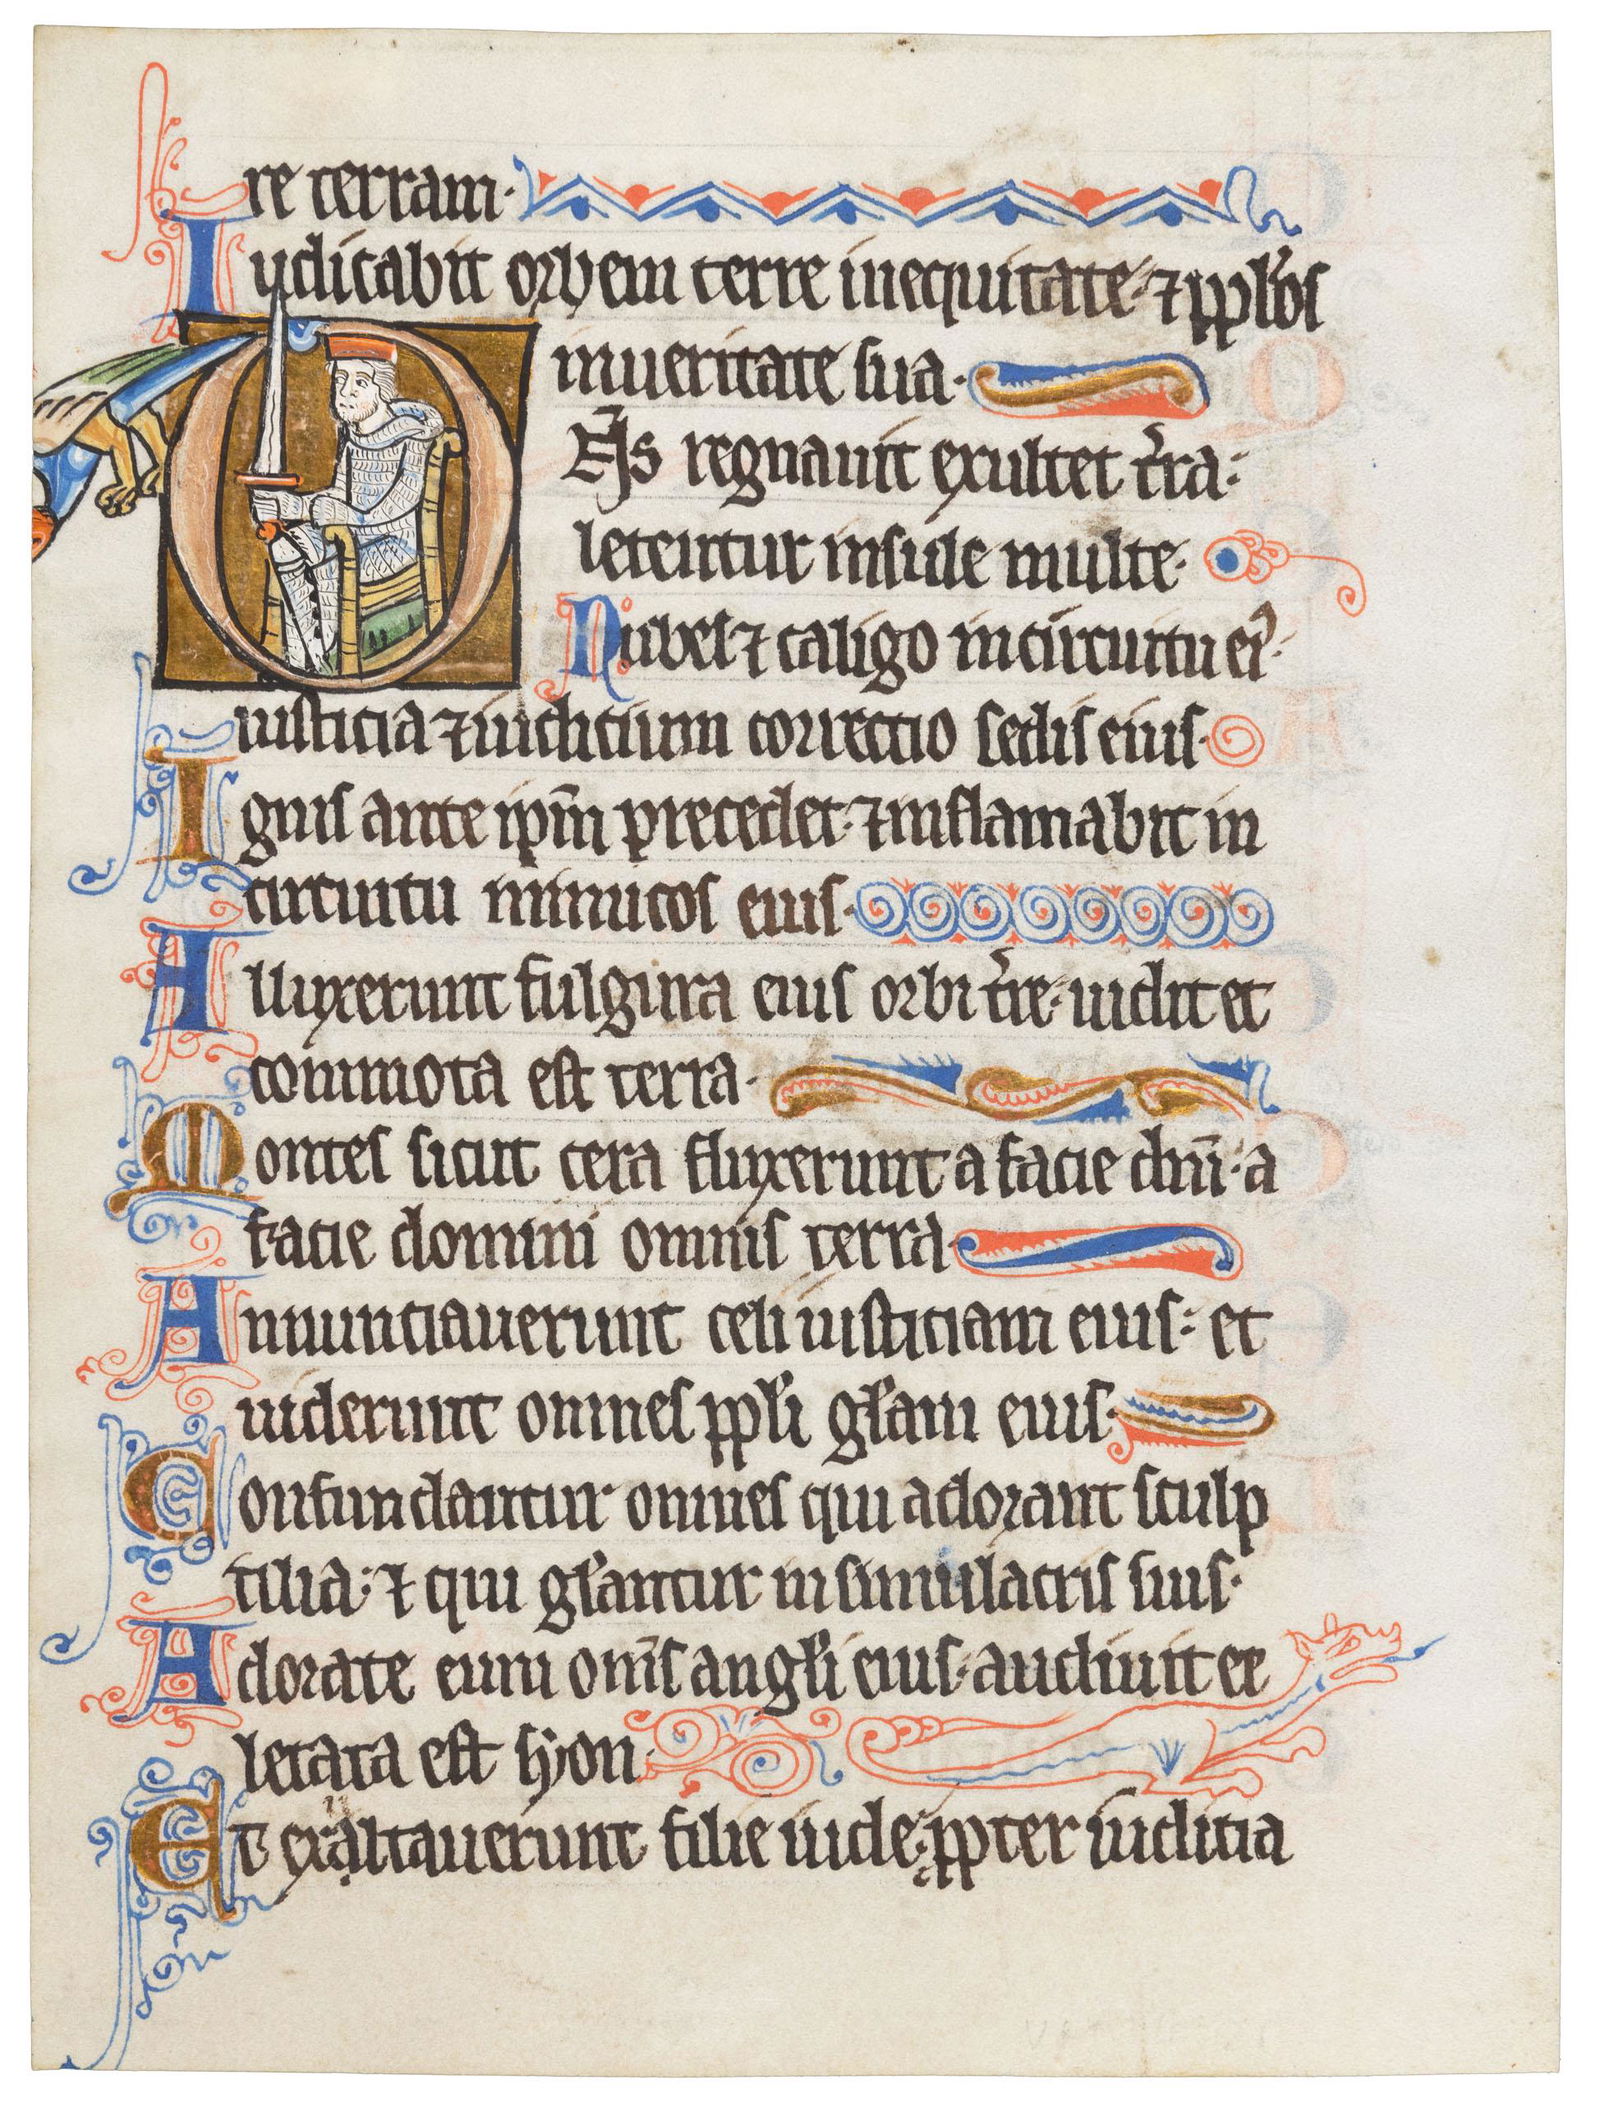 re terram·
Iudicabit orbem terre inequitate· ⁊ pplōs
inueritate sua·
DN̄S regnauit exultet t̄ra·
letentur insule multe·
Nubes ⁊ caligo incircuitu ei᷒·
iusticia ⁊ iudicium correctio sedis eius·
Ignis ante ip̄m precedet· ⁊ inflamabit in
circuitu inimicos eius·
Alluxerunt fulgura eius orbi t̄re· uidit et
commota est terra·
Montes sicut cera fluxerunt a facie dn̄i· a
facie domini omnis terra·
Annunciauerunt celi iusticiam eius· et
uiderunt omnes ppl̄i gl̄am eius·
Confundantur omnes qui adorant sculp
tilia· ⁊ qui gl̄antur in simulacris suis·
Adorate eum om̄s angl̄i eius· audiuit et
letata est syon·
Et exaltauerunt filie iude· ꝓpter iudicia